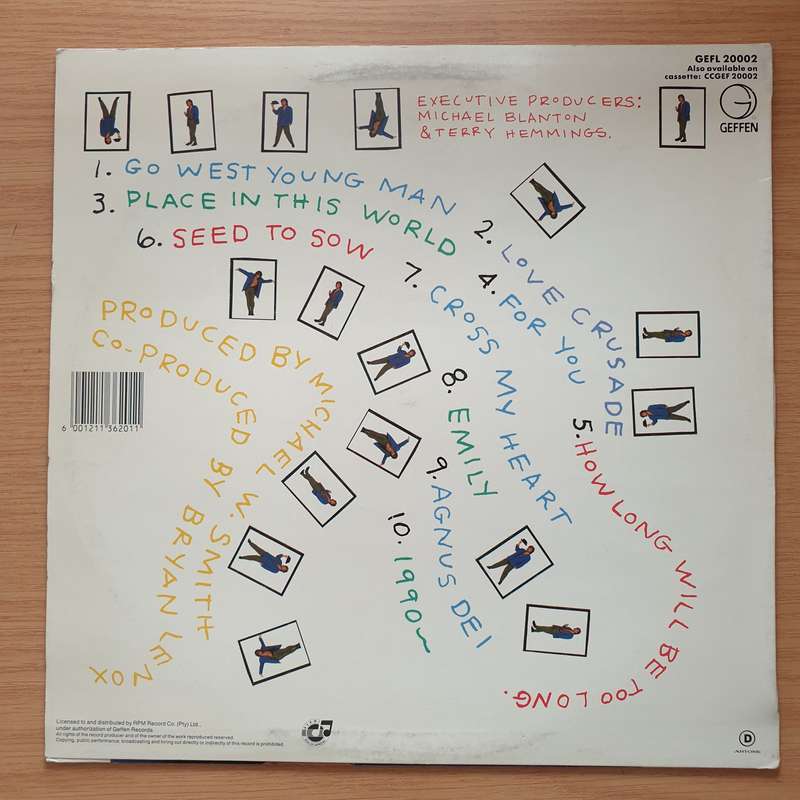 GEFL 20002
Also available on
cassette: CCGEF 20002
GEFFEN
EXECUTIVE PRODUCERS:
MICHAEL BLANTON
& TERRY HEMMINGS.
1. GO WEST YOUNG MAN
3. PLACE IN THIS WORLD
6. SEED TO SOW
2. LOVE CRUSADE
4. FOR YOU
7. CROSS MY HEART
5. HOW LONG WILL BE TOO LONG.
8. EMILY
9. AGNUS DEI
10. 1990~
PRODUCED BY MICHAEL W. SMITH
CO-PRODUCED BY BRYAN LENOX
6 001211 362011
Licensed to and distributed by RPM Record Co. (Pty) Ltd.,
under authorization of Geffen Records.
All rights of the record producer and of the owner of the work reproduced reserved.
Copying, public performance, broadcasting and hiring out directly or indirectly of this record is prohibited.
D